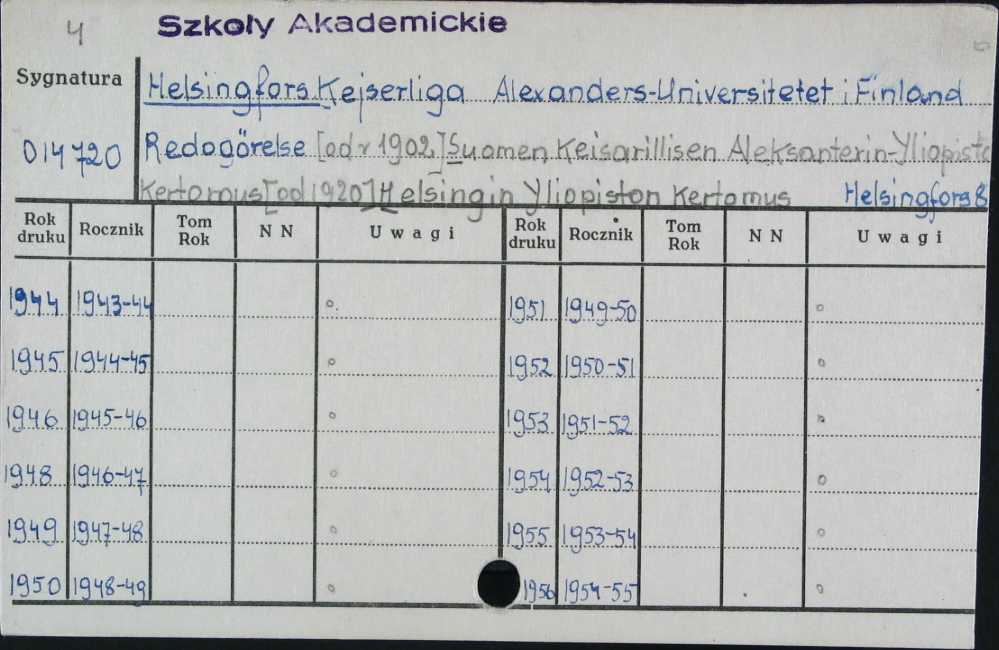 4 Szkoły Akademickie
Sygnatura Helsingfors. Kejserliga Alexanders-Universitetet i Finland
014720 Redogörelse [od r 1902] Suomen Keisarillisen Aleksanterin-Yliopisto
Kertomus [od 1920] Helsingin Yliopiston Kertomus Helsingfors 8
Rok druku Rocznik Tom Rok N N Uwagi Rok druku Rocznik Tom Rok N N Uwagi
1944 1943-44 1951 1949-50
1945 1944-45 1952 1950-51
1946 1945-46 1953 1951-52
1948 1946-47 1954 1952-53
1949 1947-48 1955 1953-54
1950 1948-49 1956 1954-55